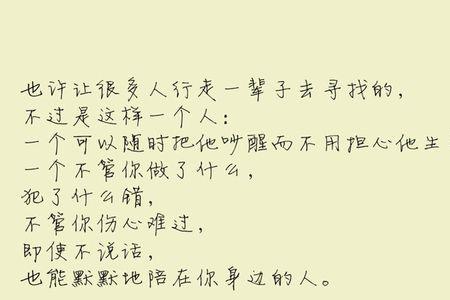 也许让很多人行走一辈子去寻找的，
不过是这样一个人：
一个可以随时把他吵醒而不用担心他生
一个不管你做了什么，
犯了什么错，
不管你伤心难过，
即使不说话，
也能默默地陪在你身边的人。